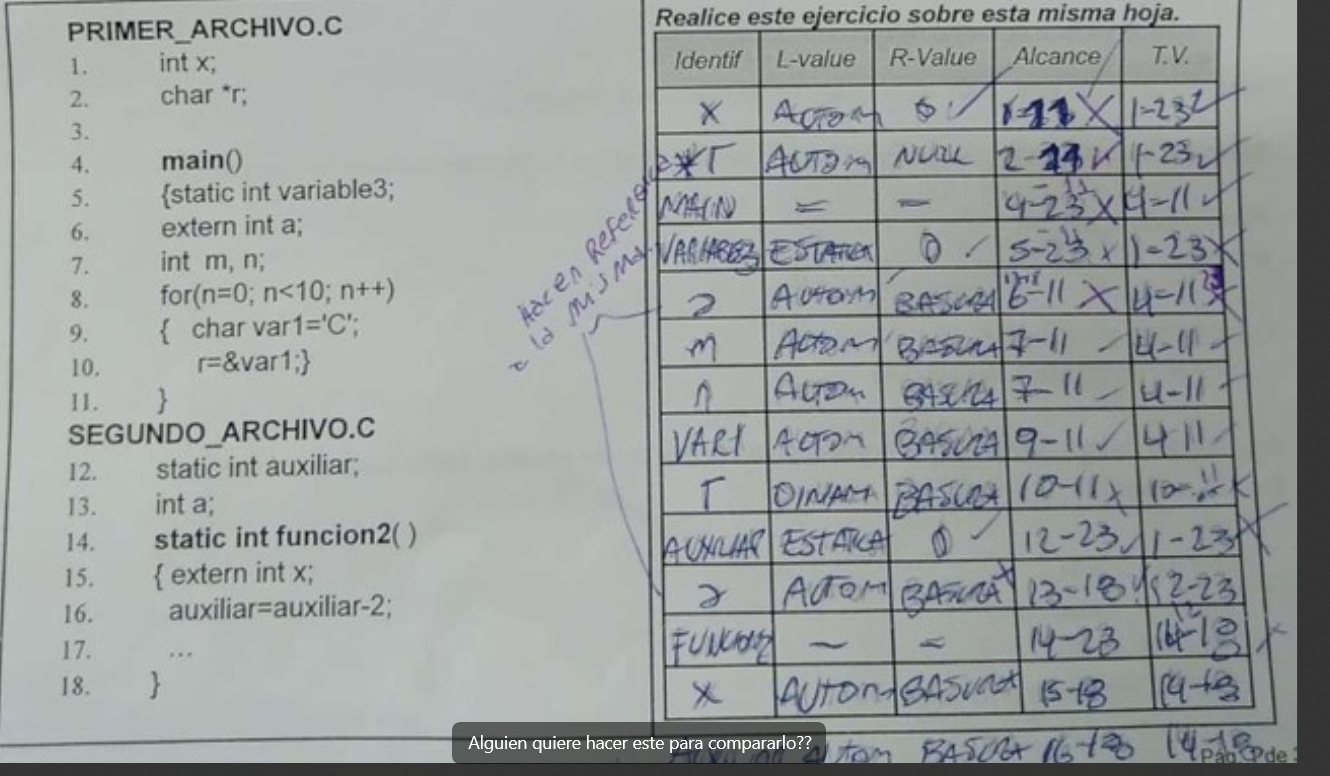 PRIMER_ARCHIVO.C
1. int x;
2. char *r;
3.
4. main()
5. {static int variable3;
6. extern int a;
7. int m, n;
8. for(n=0; n<10; n++)
9. { char var1='C';
10. r=&var1;}
11. }
SEGUNDO_ARCHIVO.C
12. static int auxiliar;
13. int a;
14. static int funcion2( )
15. { extern int x;
16. auxiliar=auxiliar-2;
17. ...
18. }
Realice este ejercicio sobre esta misma hoja.
Identif L-value R-Value Alcance T.V.
X AUTOM 0 1-23
*r AUTOM NULL 2- 1-23
MAIN = - 4-23 4-11
VARIABLE3 ESTATICA 0 5-23 1-23
a AUTOM BASURA 6-11 4-11
m AUTOM BASURA 7-11 4-11
n AUTOM BASURA 7-11 4-11
VAR1 AUTOM BASURA 9-11 4 11
r DINAM BASURA 10-11 10-
AUXILIAR ESTATICA 0 12-23 1-23
a AUTOM BASURA 13-18 12-23
FUNCION2 - = 14-23 14-18
X AUTOM BASURA 15-18 14-18
AUTOM BASURA 16-18 14-18
Hacen Referencia
a la misma
Pág. de
Alguien quiere hacer este para compararlo??